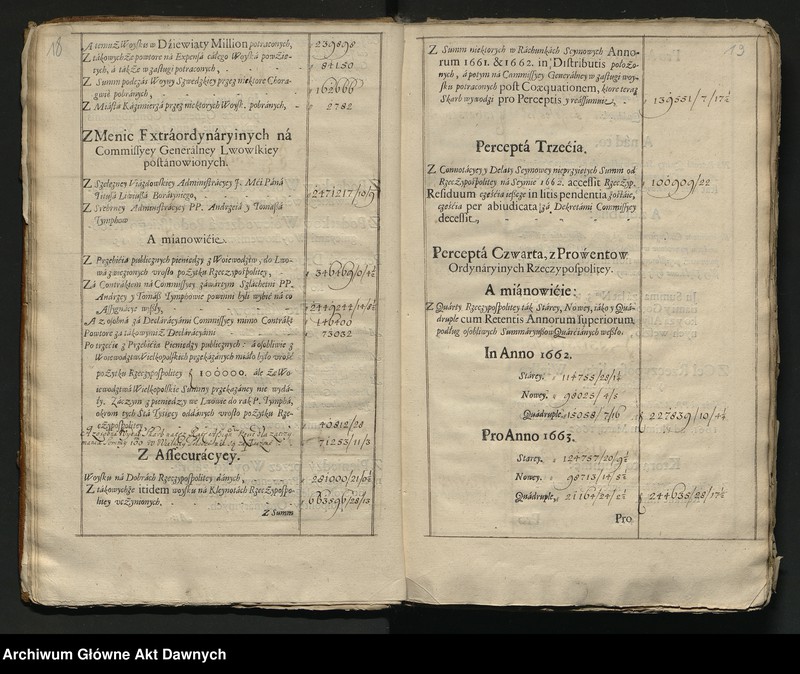 18
A temu Woysku w Dźiewiaty Million potraconych, 239898
Z takowychże powtore na Expensa cáłego Woyská powźię-
tych, á tákże w zasługi potraconych, 84150
Z Summ podczás Woyny Szwedzkiey przez niektore Chora-
gwie pobránych, 162666
Z Miástá Káźimierzá przez niektorych Woysk. pobránych, 2782
Z Menic Extráordynáryinych ná
Commissyey Generálney Lwowskiey
postánowionych.
Z Szelęzney Viazdowskiey Administrácyey J. Mći Páná
Tituśa Liviusśa Boratyniego, 2471217/10/9
Z Srebrney Administrácyey PP. Andrzeiá y Tomaszá
Tymphow
A mianowićie,
Z Przebićia publicznych pieniędzy z Woiewodztw, do Lwo-
wá zwiezionych vrosło pożytku Rzeczypospolitey, 346469/0/4½
Zá Contráktem ná Commissyey záwártym Szláchetni PP.
Andrzey y Tomász Tymphowie powinni byli wybić ná co
Assygnácye weszły, 2449244/14/8½
A z osobná zá Declarácyámi Commissyey mimo Contrákt 146400
Powtore zá takowymiż Declarácyámi 73032
Po trzecie z Przebićia Pieniędzy publicznych: á osobliwie z
Woiewodztw Wielkopolskich przekázánych miáło było vrość
pożytku Rzeczypospolitey 100000. ále że Wo-
iewodztwá Wielkopolskie Summy przekazáney nie wydá-
ły. Záczym z pieniędzy we Lwowie do rak P. Tymphá,
okrom tych Stá Tyśięcy oddánych vrosło pożytku Rze-
czypospolitey 40812/28
71253/11/3
Z Assecurácyey.
Woysku ná Dobrách Rzeczypospolitey dánych, 281000/21/6½
Z tákowychże itidem woysku ná Kleynotách Rzeczypospo-
litey vczynionych. 663596/28/13
Z Summ
13
Z Summ niektorych w Ráchunkách Seymowych Anno-
rum 1661. & 1662. in Distributis położo-
nych, á potym ná Commissyey Generálney w zasługi woy-
sku potraconych post Coæquationem, ktore teraz
Skarb wywodzi pro Perceptis y reássumuie. 139551/7/17½
Perceptá Trzećia.
Z Connotácyey y Delaty Seymowey nieprzyiętych Summ od
Rzeczypospolitey ná Seymie 1662. accessit Rzeczyp.
Residuum częśćia ieszcze in litis pendentia zostáie,
częśćia per abiudicata zá Dekretámi Commissyey
decessit. 100909/22
Perceptá Czwarta, z Prowentow
Ordynáryinych Rzeczypospolitey.
A miánowićie:
Z Quárty Rzeczypospolitey ták Stárey, Nowey, iáko y Quá-
druple cum Retentis Annorum superiorum,
podług osobliwych Summáryuszow Quárćiánych weszło.
In Anno 1662.
Stárey. 114755/28/1½
Nowey. 98025/4/5
Quádruple. 15058/7/16 227839/10/4½
Pro Anno 1663.
Starey. 124757/20/9½
Nowey. 98713/14/5½
Quádruple, 21164/24/2½ 244635/28/17½
Pro
Archiwum Główne Akt Dawnych